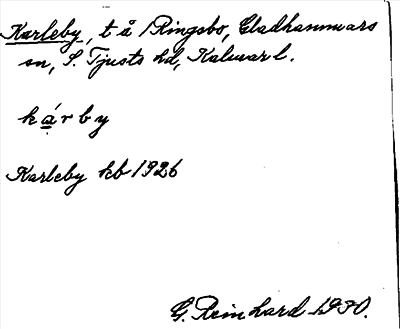 Karleby, t å Ringsbo, Gladhammars
sn, S. Tjusts hd, Kalmar l.
kárby
Karleby kb 1926
G. Reinhard 1930.